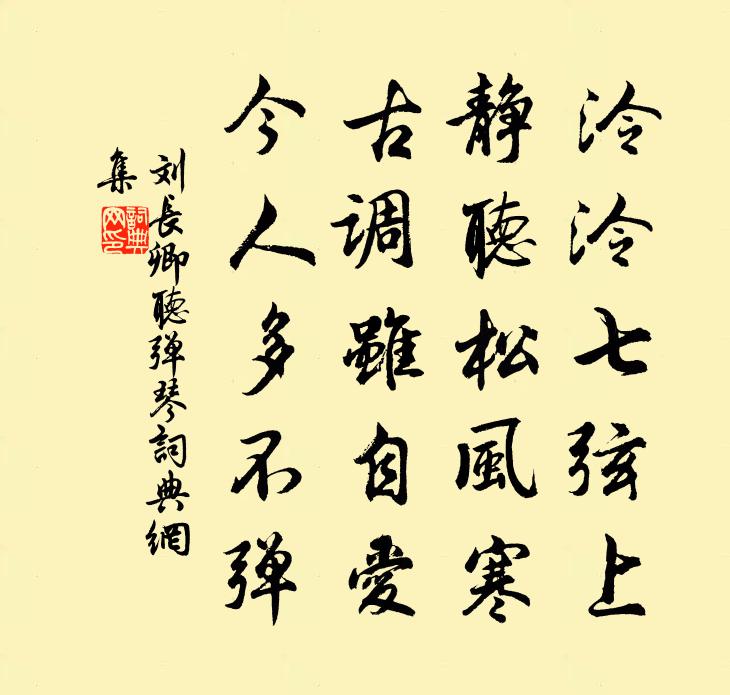 泠泠七弦上
静聽松風寒
古调雖自愛
今人多不弹
刘長卿聽弹琴詞典網
集
詞典网印